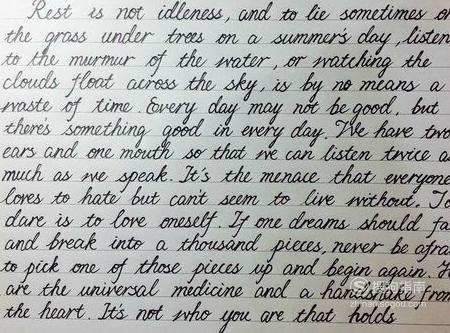 Rest is not idleness, and to lie sometimes on
the grass under trees on a summer's day, listen
to the murmur of the water, or watching the
clouds float across the sky, is by no means a
waste of time. Every day may not be good, but
there's something good in every day. We have two
ears and one mouth so that we can listen twice as
much as we speak. It's the menace that everyone
loves to hate but can't seem to live without. To
dare is to love oneself. If one dreams should fa
and break into a thousand pieces, never be afra
to pick one of those pieces up and begin again. H
are the universal medicine and a handshake from
the heart. It's not who you are that holds
搜狗指南
zhinan.sogou.com